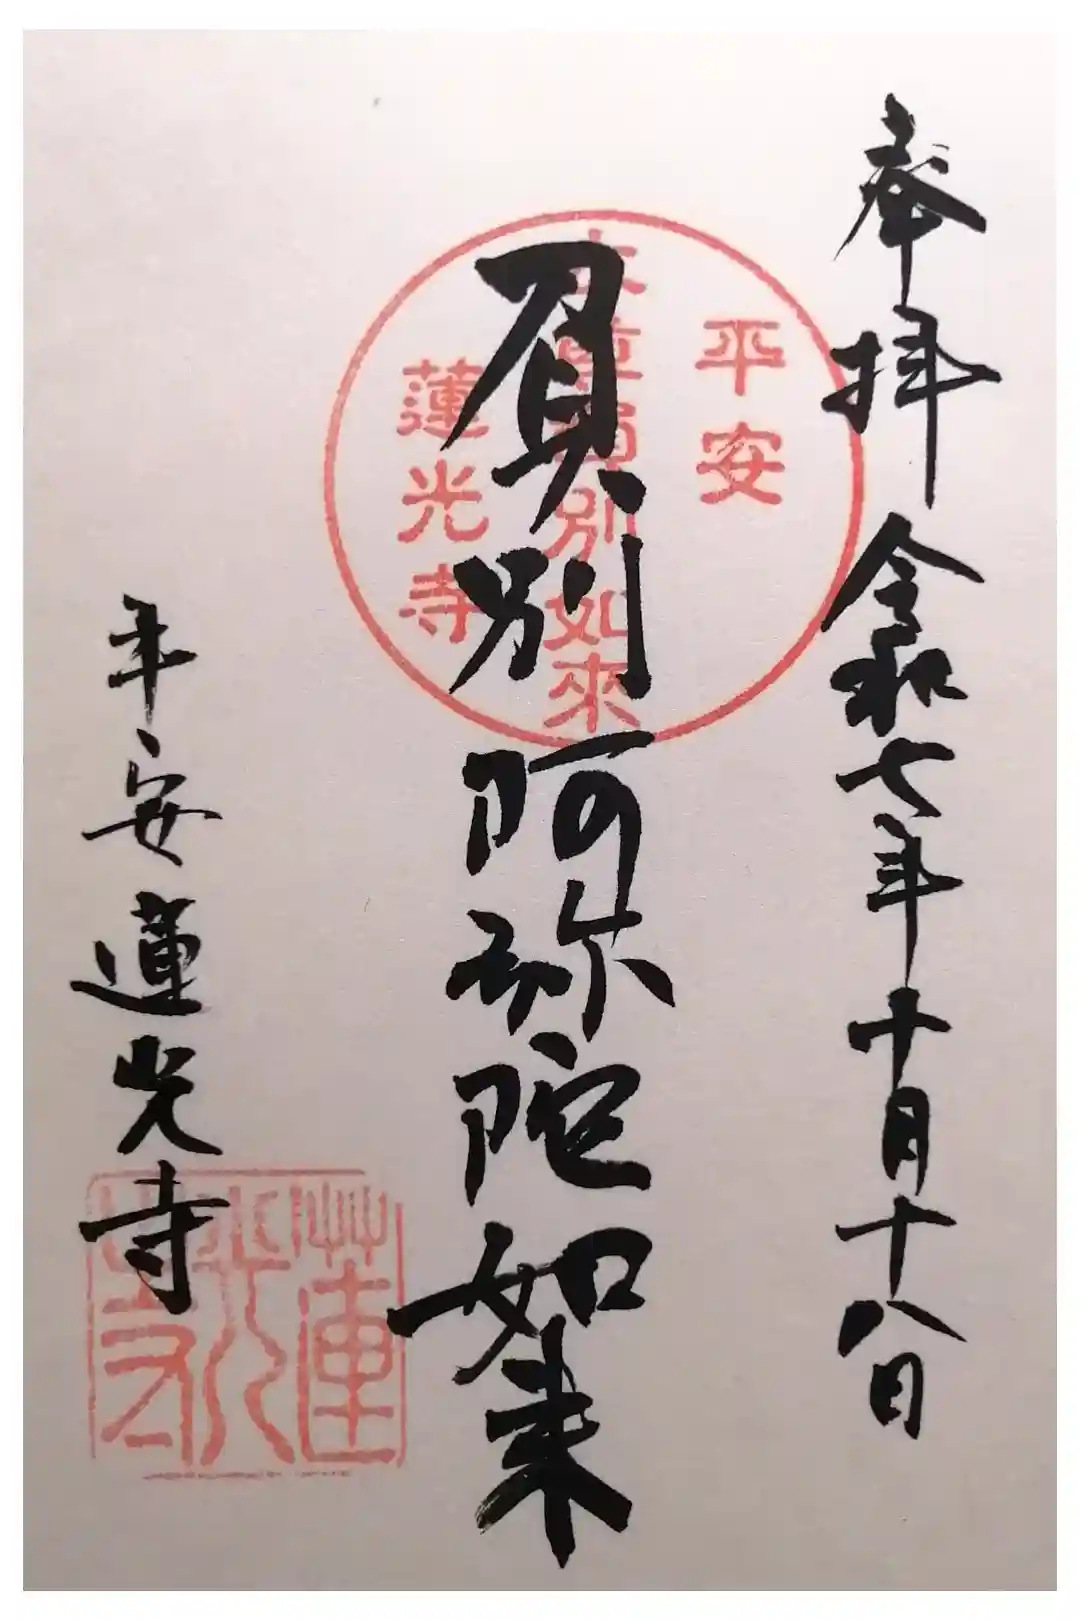 奉拝 令和七年十月十八日
負別阿弥陀如来
平安蓮光寺
平安
負別如來
蓮光寺
蓮光寺